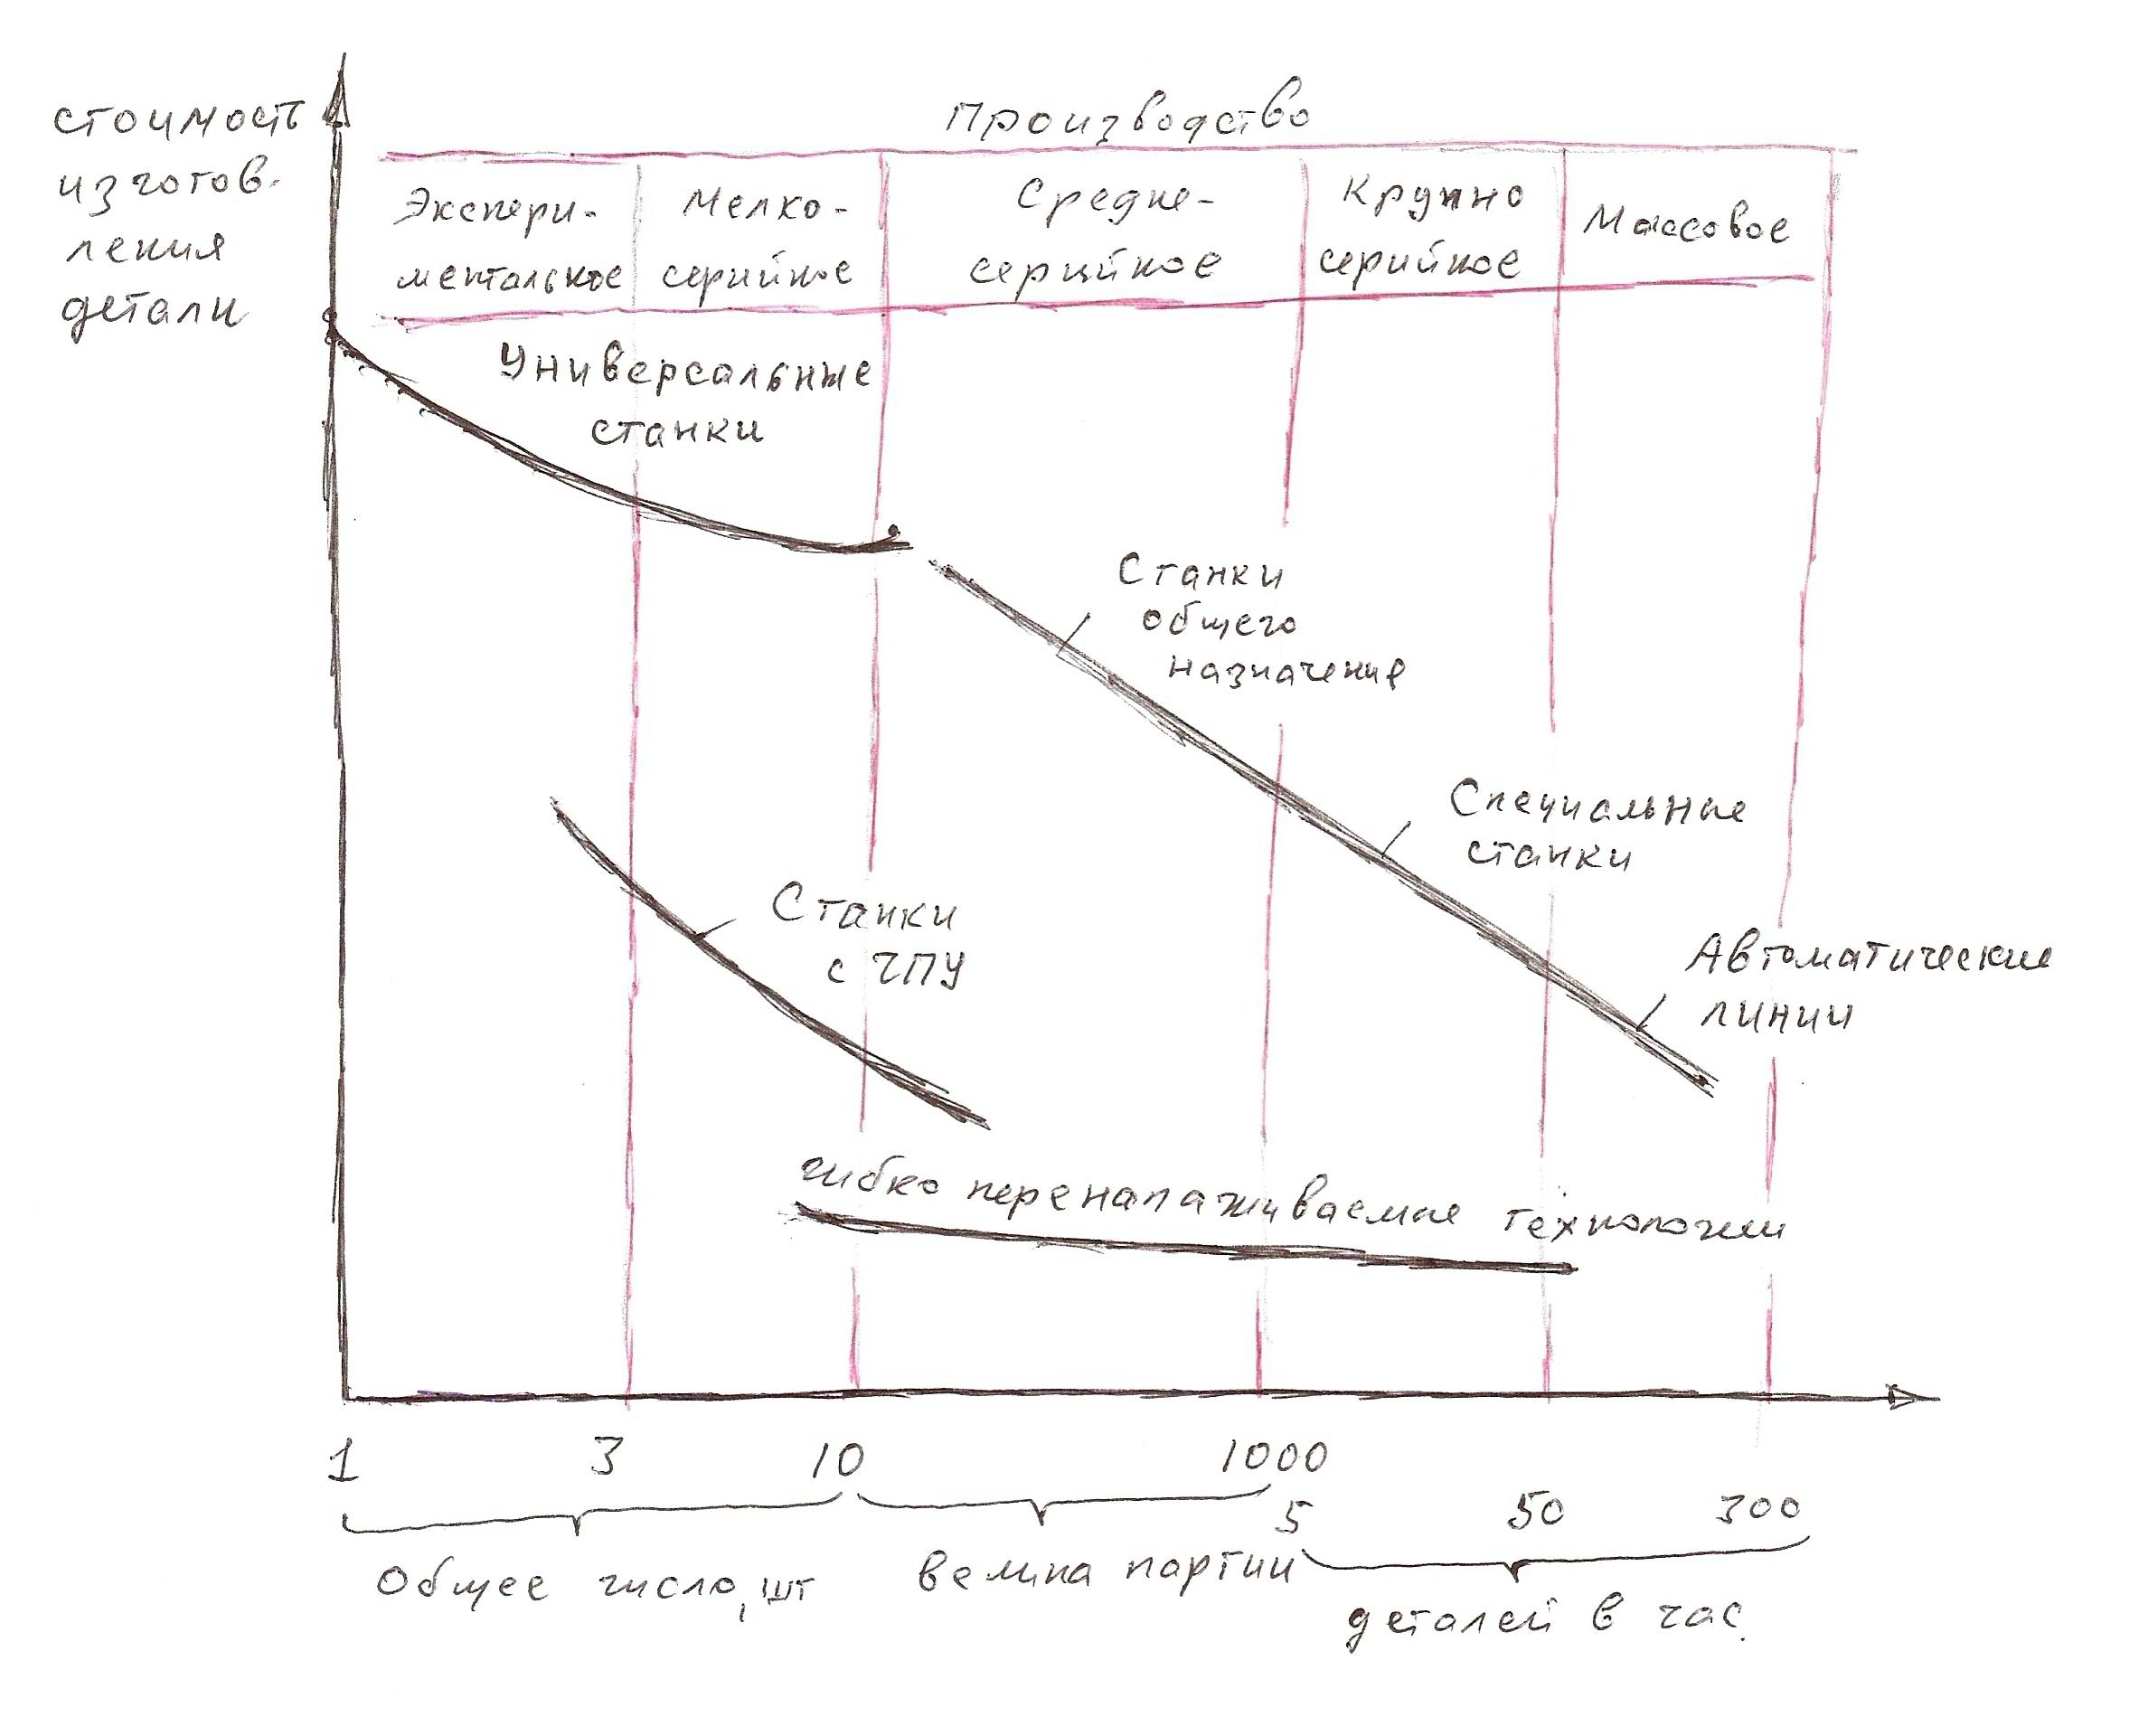 стоимость
изготов-
ления
детали
Производство
Экспери-
ментальное
Мелко-
серийное
Средне-
серийное
Крупно
серийное
Массовое
Универсальные
станки
Станки
общего
назначения
Специальные
станки
Автоматические
линии
Станки
с ЧПУ
гибко переналаживаемые технологии
1 3 10 1000
5 50 300
Общее число, шт
партии
деталей в час.